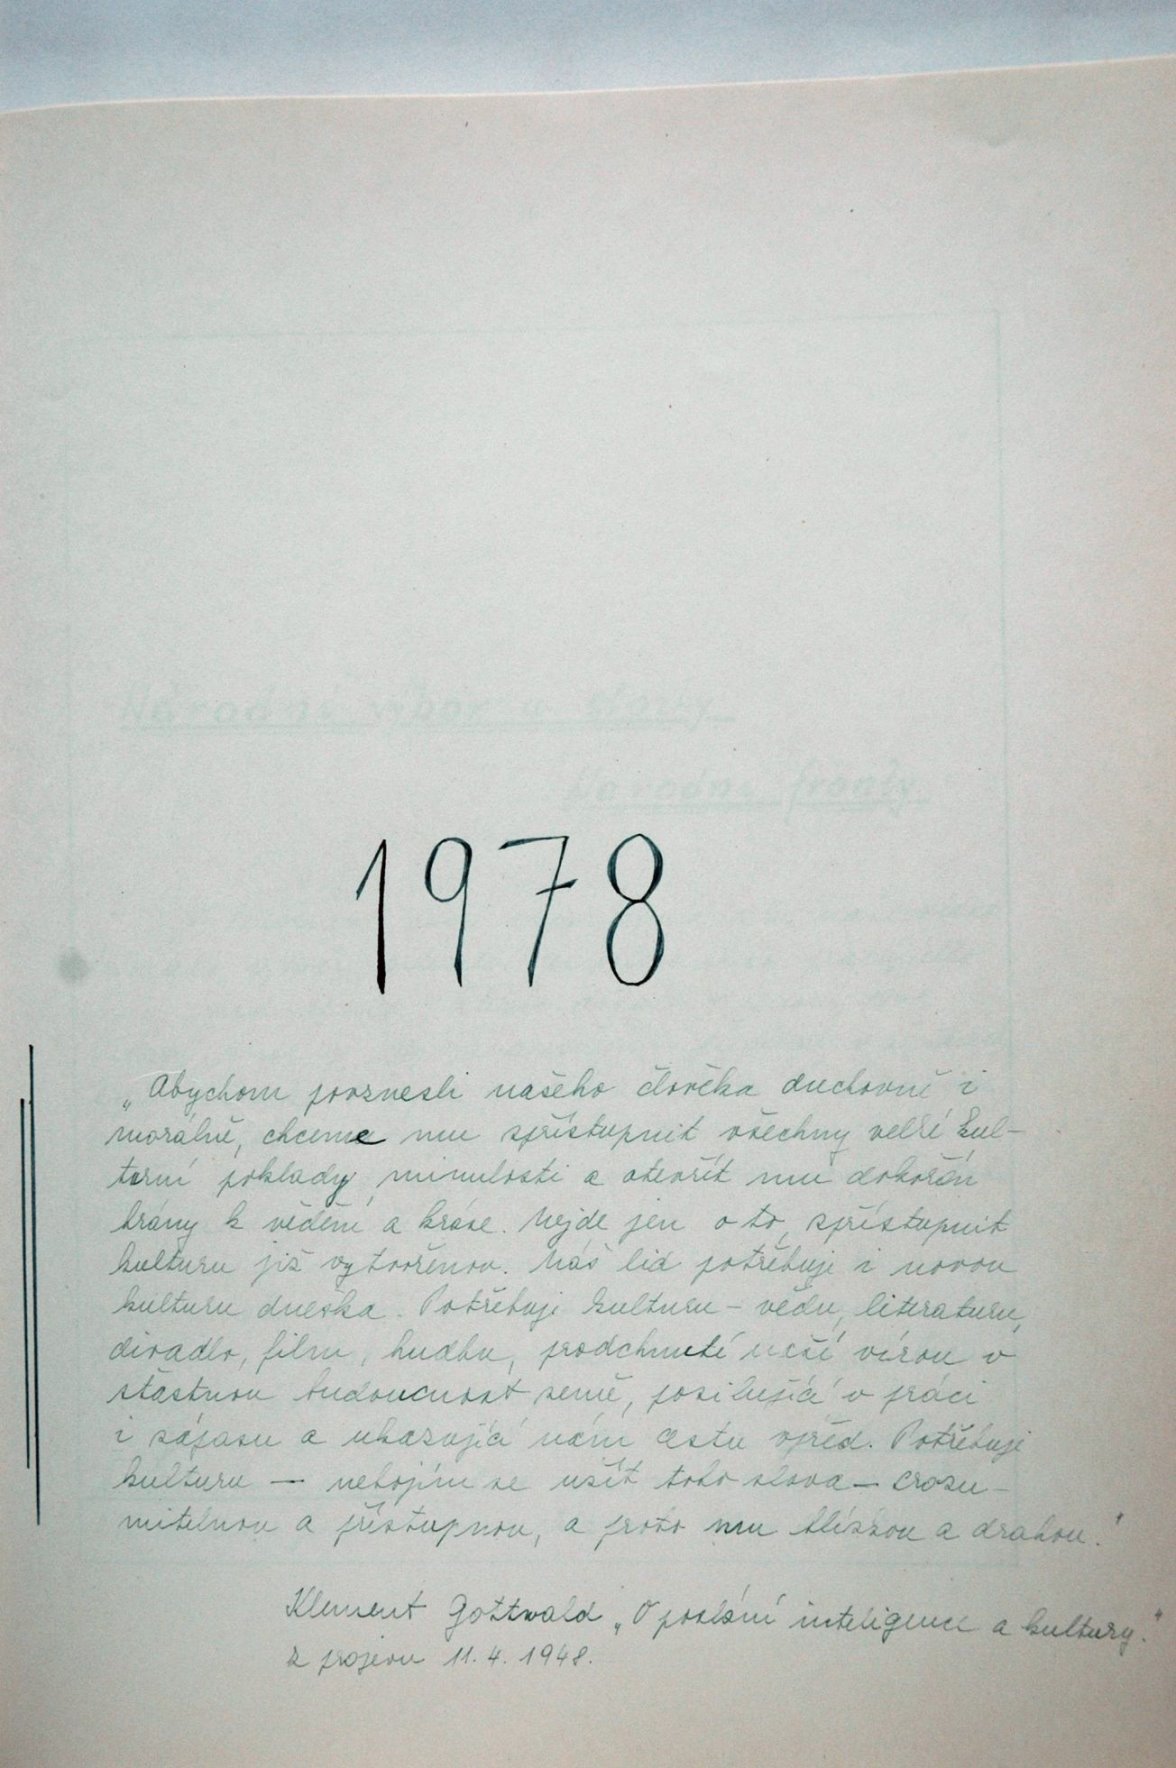 Národní výbor a složky
Národní fronty
1978
„Abychom povznesli našeho člověka duchovně i
morálně, chceme mu zpřístupnit všechny velké kul-
turní poklady minulosti a otevřít mu dokořán
brány k vědění a kráse. Nejde jen o to, zpřístupnit
kulturu již vytvořenou. Náš lid potřebuje i novou
kulturu dneška. Potřebuje kulturu - vědu, literaturu,
divadlo, film, hudbu, prodchnuté naší vírou v
šťastnou budoucnost země, posilující v práci
i zápasu a ukazující nám cestu vpřed. Potřebuje
kulturu — nebojím se užít toho slova — srozu-
mitelnou a přístupnou, a proto mu blízkou a drahou."
Klement Gottwald „O poslání inteligence a kultury."
z projevu 11.4.1948.